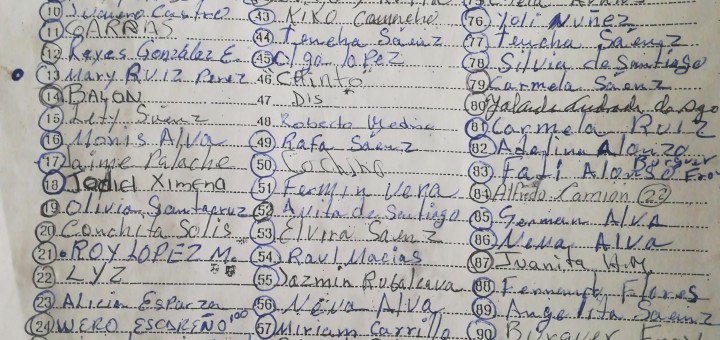 10 Castro
11 GARRAS
12 Reyes Gonzalez E.
13 Mary RUIZ Perez
14 BAYON
15 Lety Saenz
16 Alva
17 Jaime Palache
18 Ximena
19 Olivia Santacruz
20 Conchita Solis
21 ROY LOPEZ M.
22 LYZ
23 Alicia Esparza
24 WERO ESCAREÑO 100
43 KIKO Camacho
44 Temcha Saenz
45 Olga LOPEZ
46 CHINTO
47 DIS
48 Roberto Medina
49 Rafa Saenz
50 Cochino
51 Fermin Vera
52 Anita de Santiago
53 Elvira Saenz
54 Raul Macias
55 Jazmin Rubalcava
56 Neiva Alva
57 Miriam Carrillo
76 Yoli Nuñez
77 Tencha Saenz
78 Silvia de Santiago
79 Carmela Saenz
80
81 Carmela RUIZ
82 Adelina Alonzo
83 Burguer
84 Alfredo (22)
85 German ALVA
86 Neva Alva
87 Juanita H.M
88 Fernando Flores
89 Angelita Saenz
90 Burguer